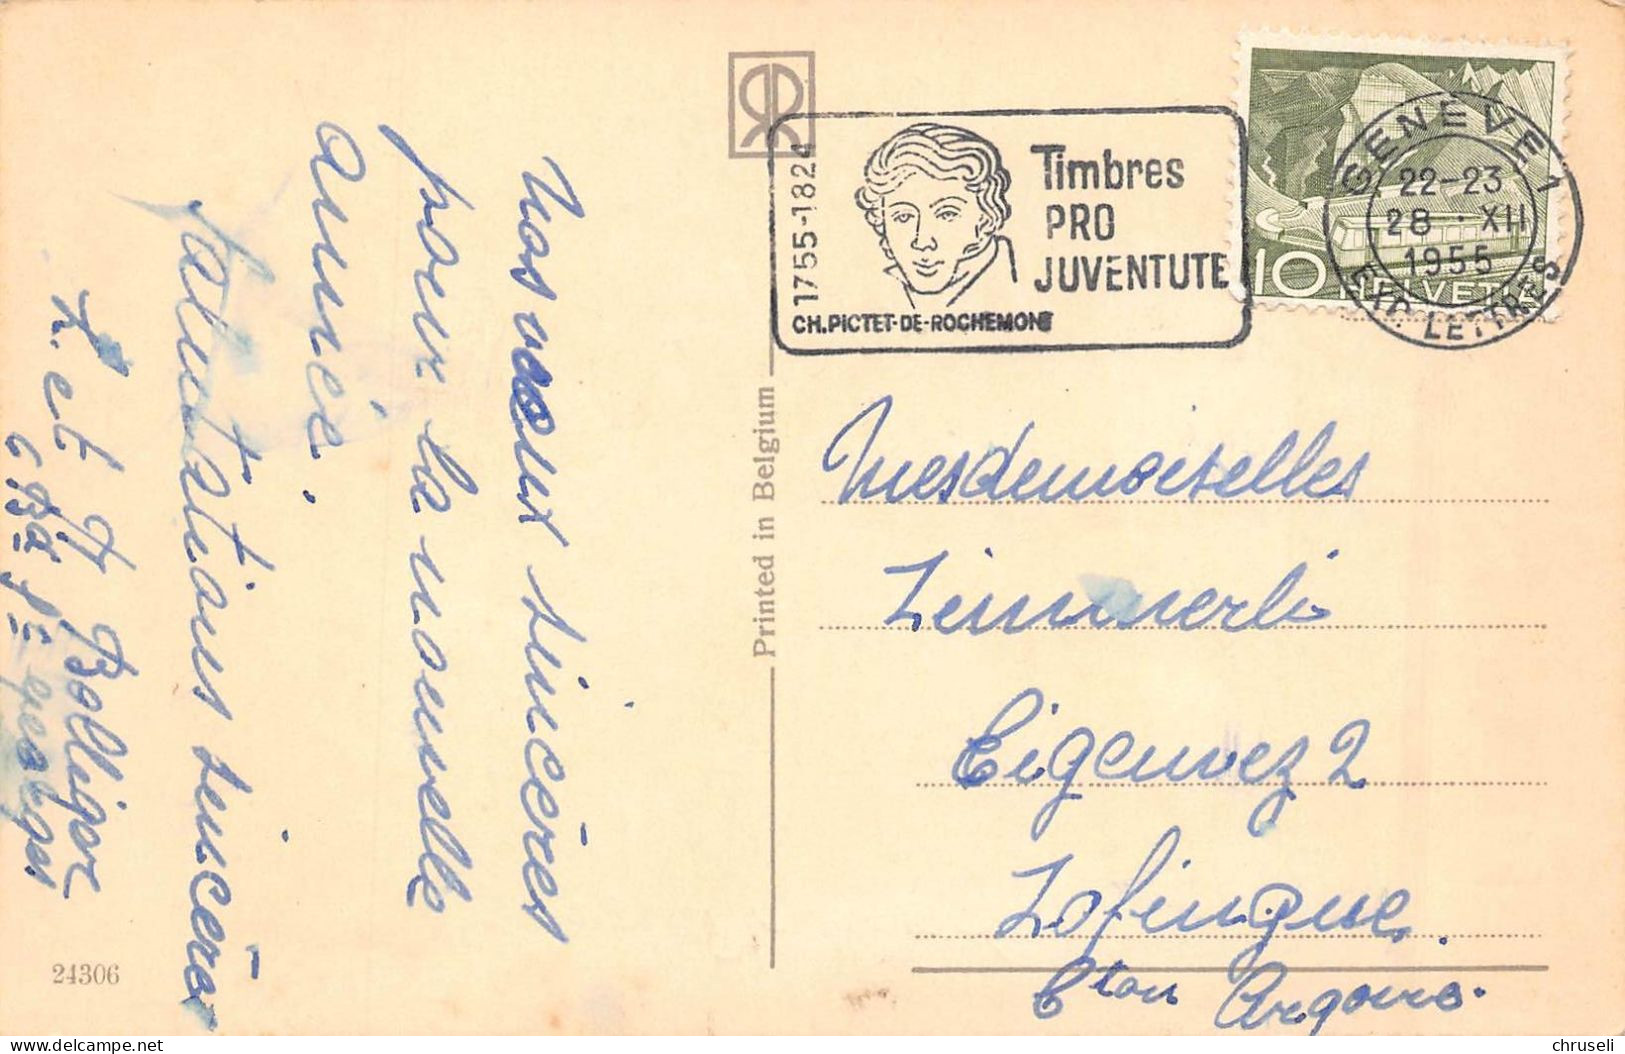 Nos voeux sincères
pour la nouvelle
année.
Salutations sincères
et Bolliger
24306
Printed in Belgium
1755-1824
Timbres
PRO
JUVENTUTE
CH.PICTET-DE-ROCHEMONT
GENÈVE 1
22-23
28.XII
1955
EXP. LETTRES
10 HELVETIA
Mesdemoiselles
Zimmerli
Eigenweg 2
Zofingue.
Cton Argovie.
chruseli